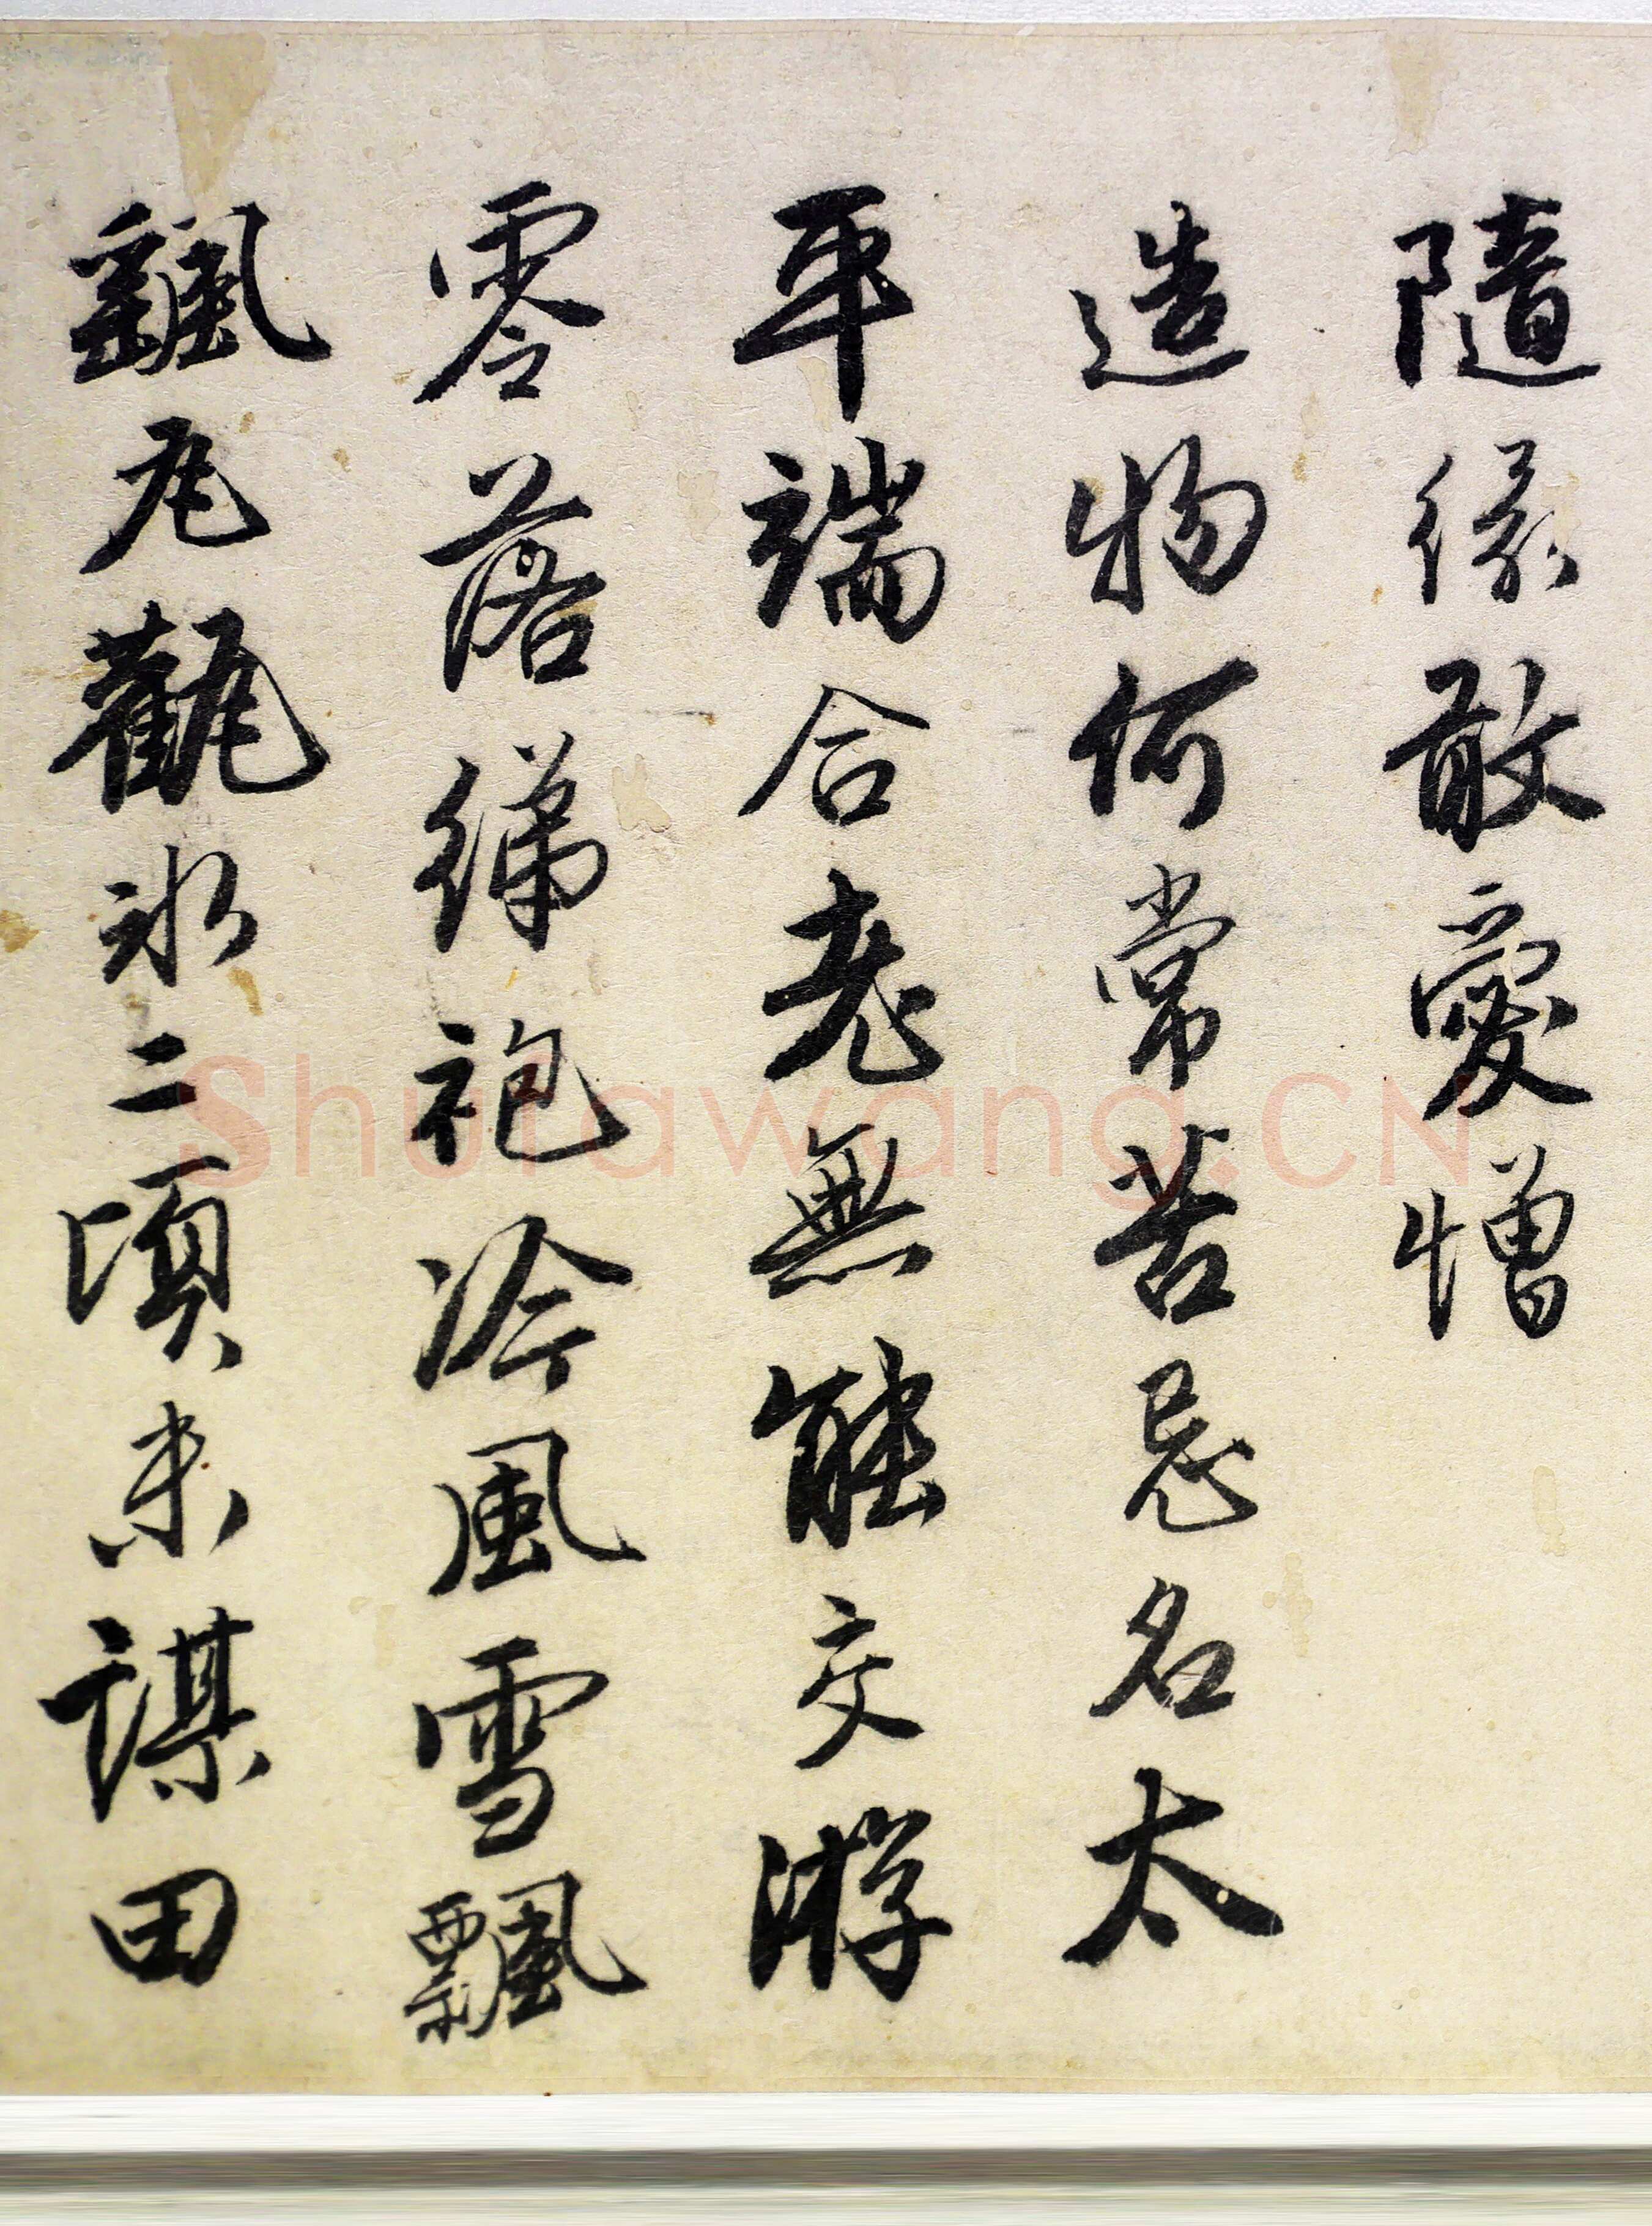 隨緣敢愛憎
造物何常苦忌名太
平端合老無能交游
零落綈袍冷風雪飄
颻瓦罐冰二頃未謀田
Shufawang.CN